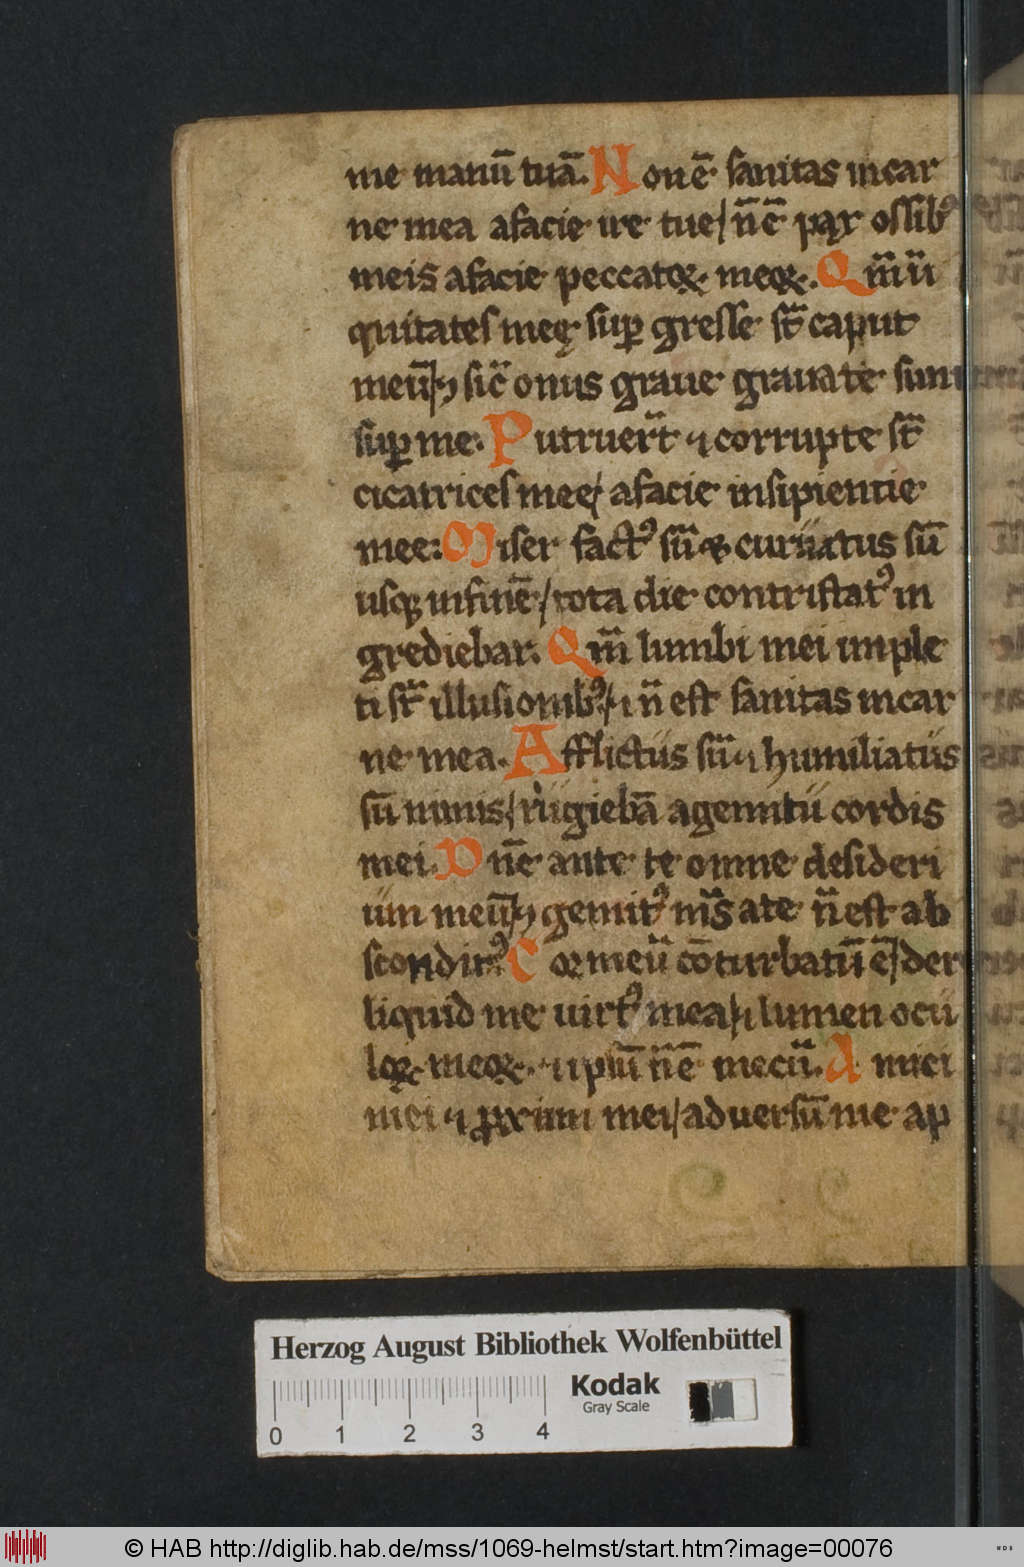 me manū tuā. Non ē sanitas in car
ne mea a facie ire tue / n̄ ē pax ossibꝰ
meis a facie peccatoꝝ meoꝝ. Qm̄ ii
quitates meę suꝑ gresse st̄ caput
meū / ⁊ sic̄ onus graue grauate sunt
suꝑ me. Putruer̄t ⁊ corrupte st̄
cicatrices mee / a facie insipientie
mee: Miser factꝰ sū & curuatus sū
usqꝫ in finē / tota die contristatꝰ in
grediebar. Qm̄ lumbi mei imple
ti st̄ illusionibꝰ / ⁊ n̄ est sanitas in car
ne mea. Afflictus sū ⁊ humiliatus
sū nimis / rugiebā a gemitu cordis
mei. Dn̄e ante te omne desideri
um meū / ⁊ gemitꝰ ms̄ a te n̄ est ab
sconditꝰ. Cor meū cōturbatū ē / dere
liquid me uirtꝰ mea / ⁊ lumen ocu
loꝝ meoꝝ. ⁊ ip̄ū n̄ ē mecū. Amici
mei ⁊ ꝓximi mei / aduersū me ap
Herzog August Bibliothek Wolfenbüttel
Kodak
Gray Scale
0 1 2 3 4
© HAB http://diglib.hab.de/mss/1069-helmst/start.htm?image=00076